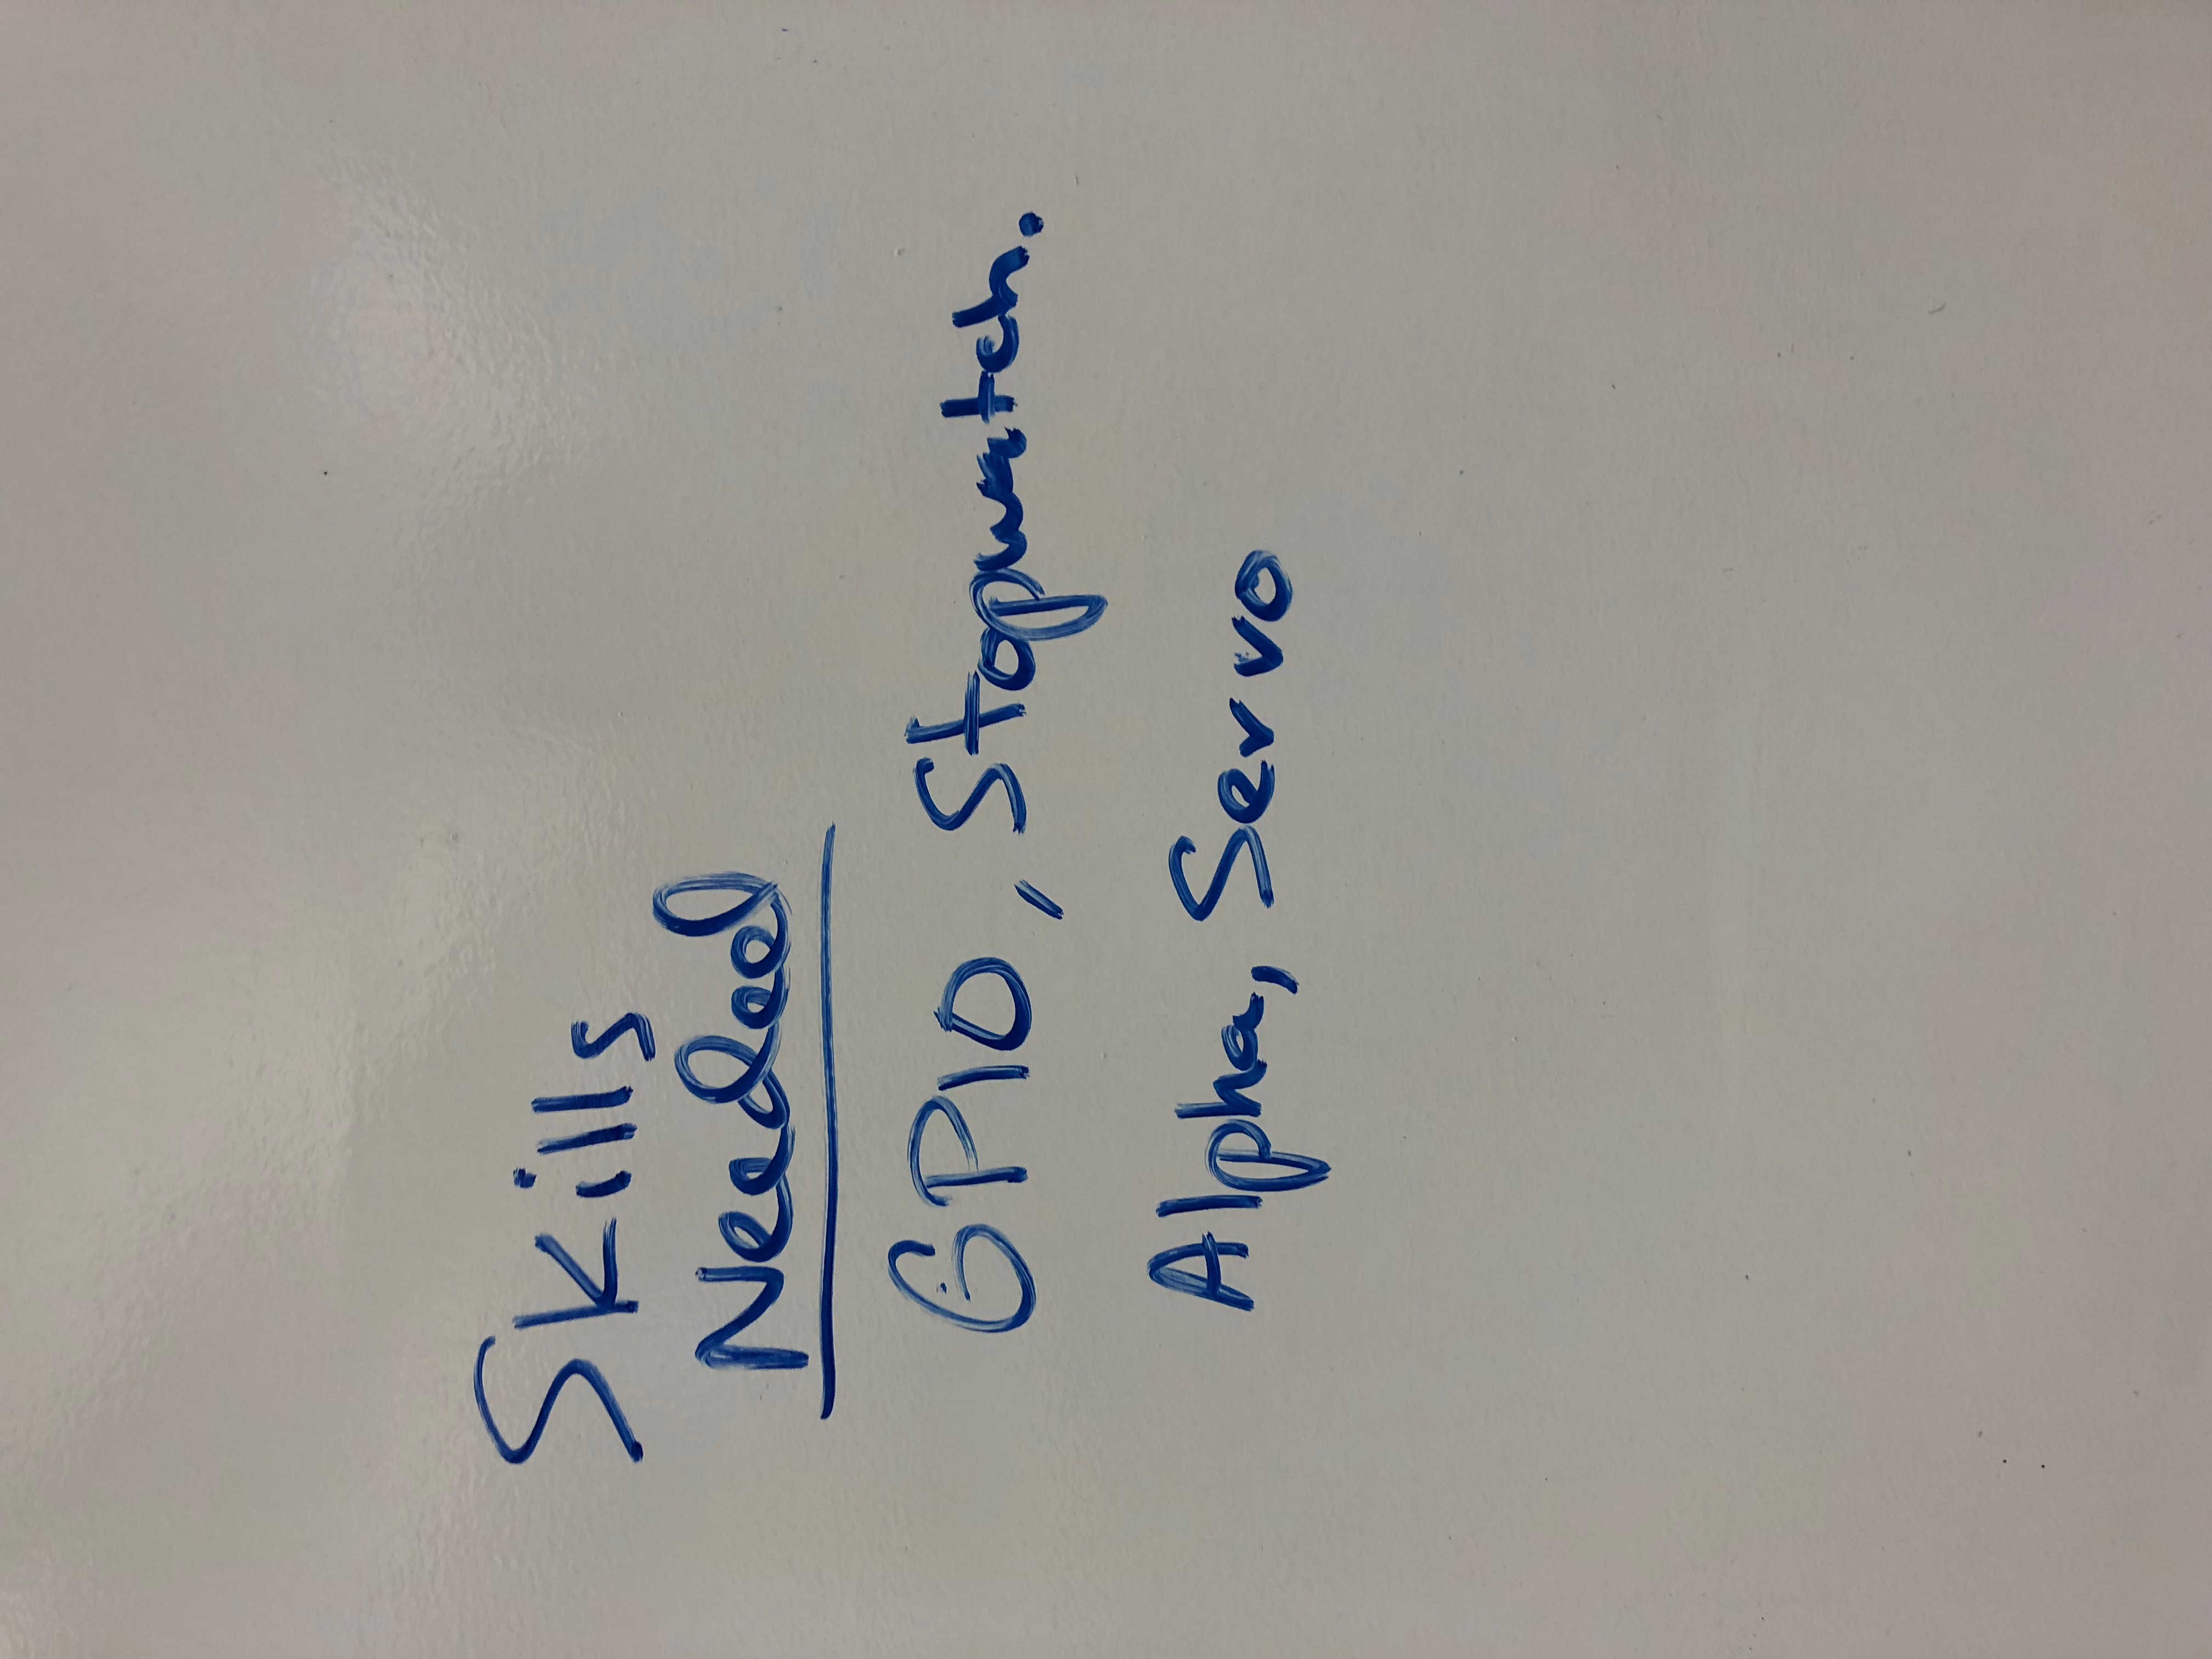 Skills
Needed
GPIO, Stopwatch.
Alpha, Servo